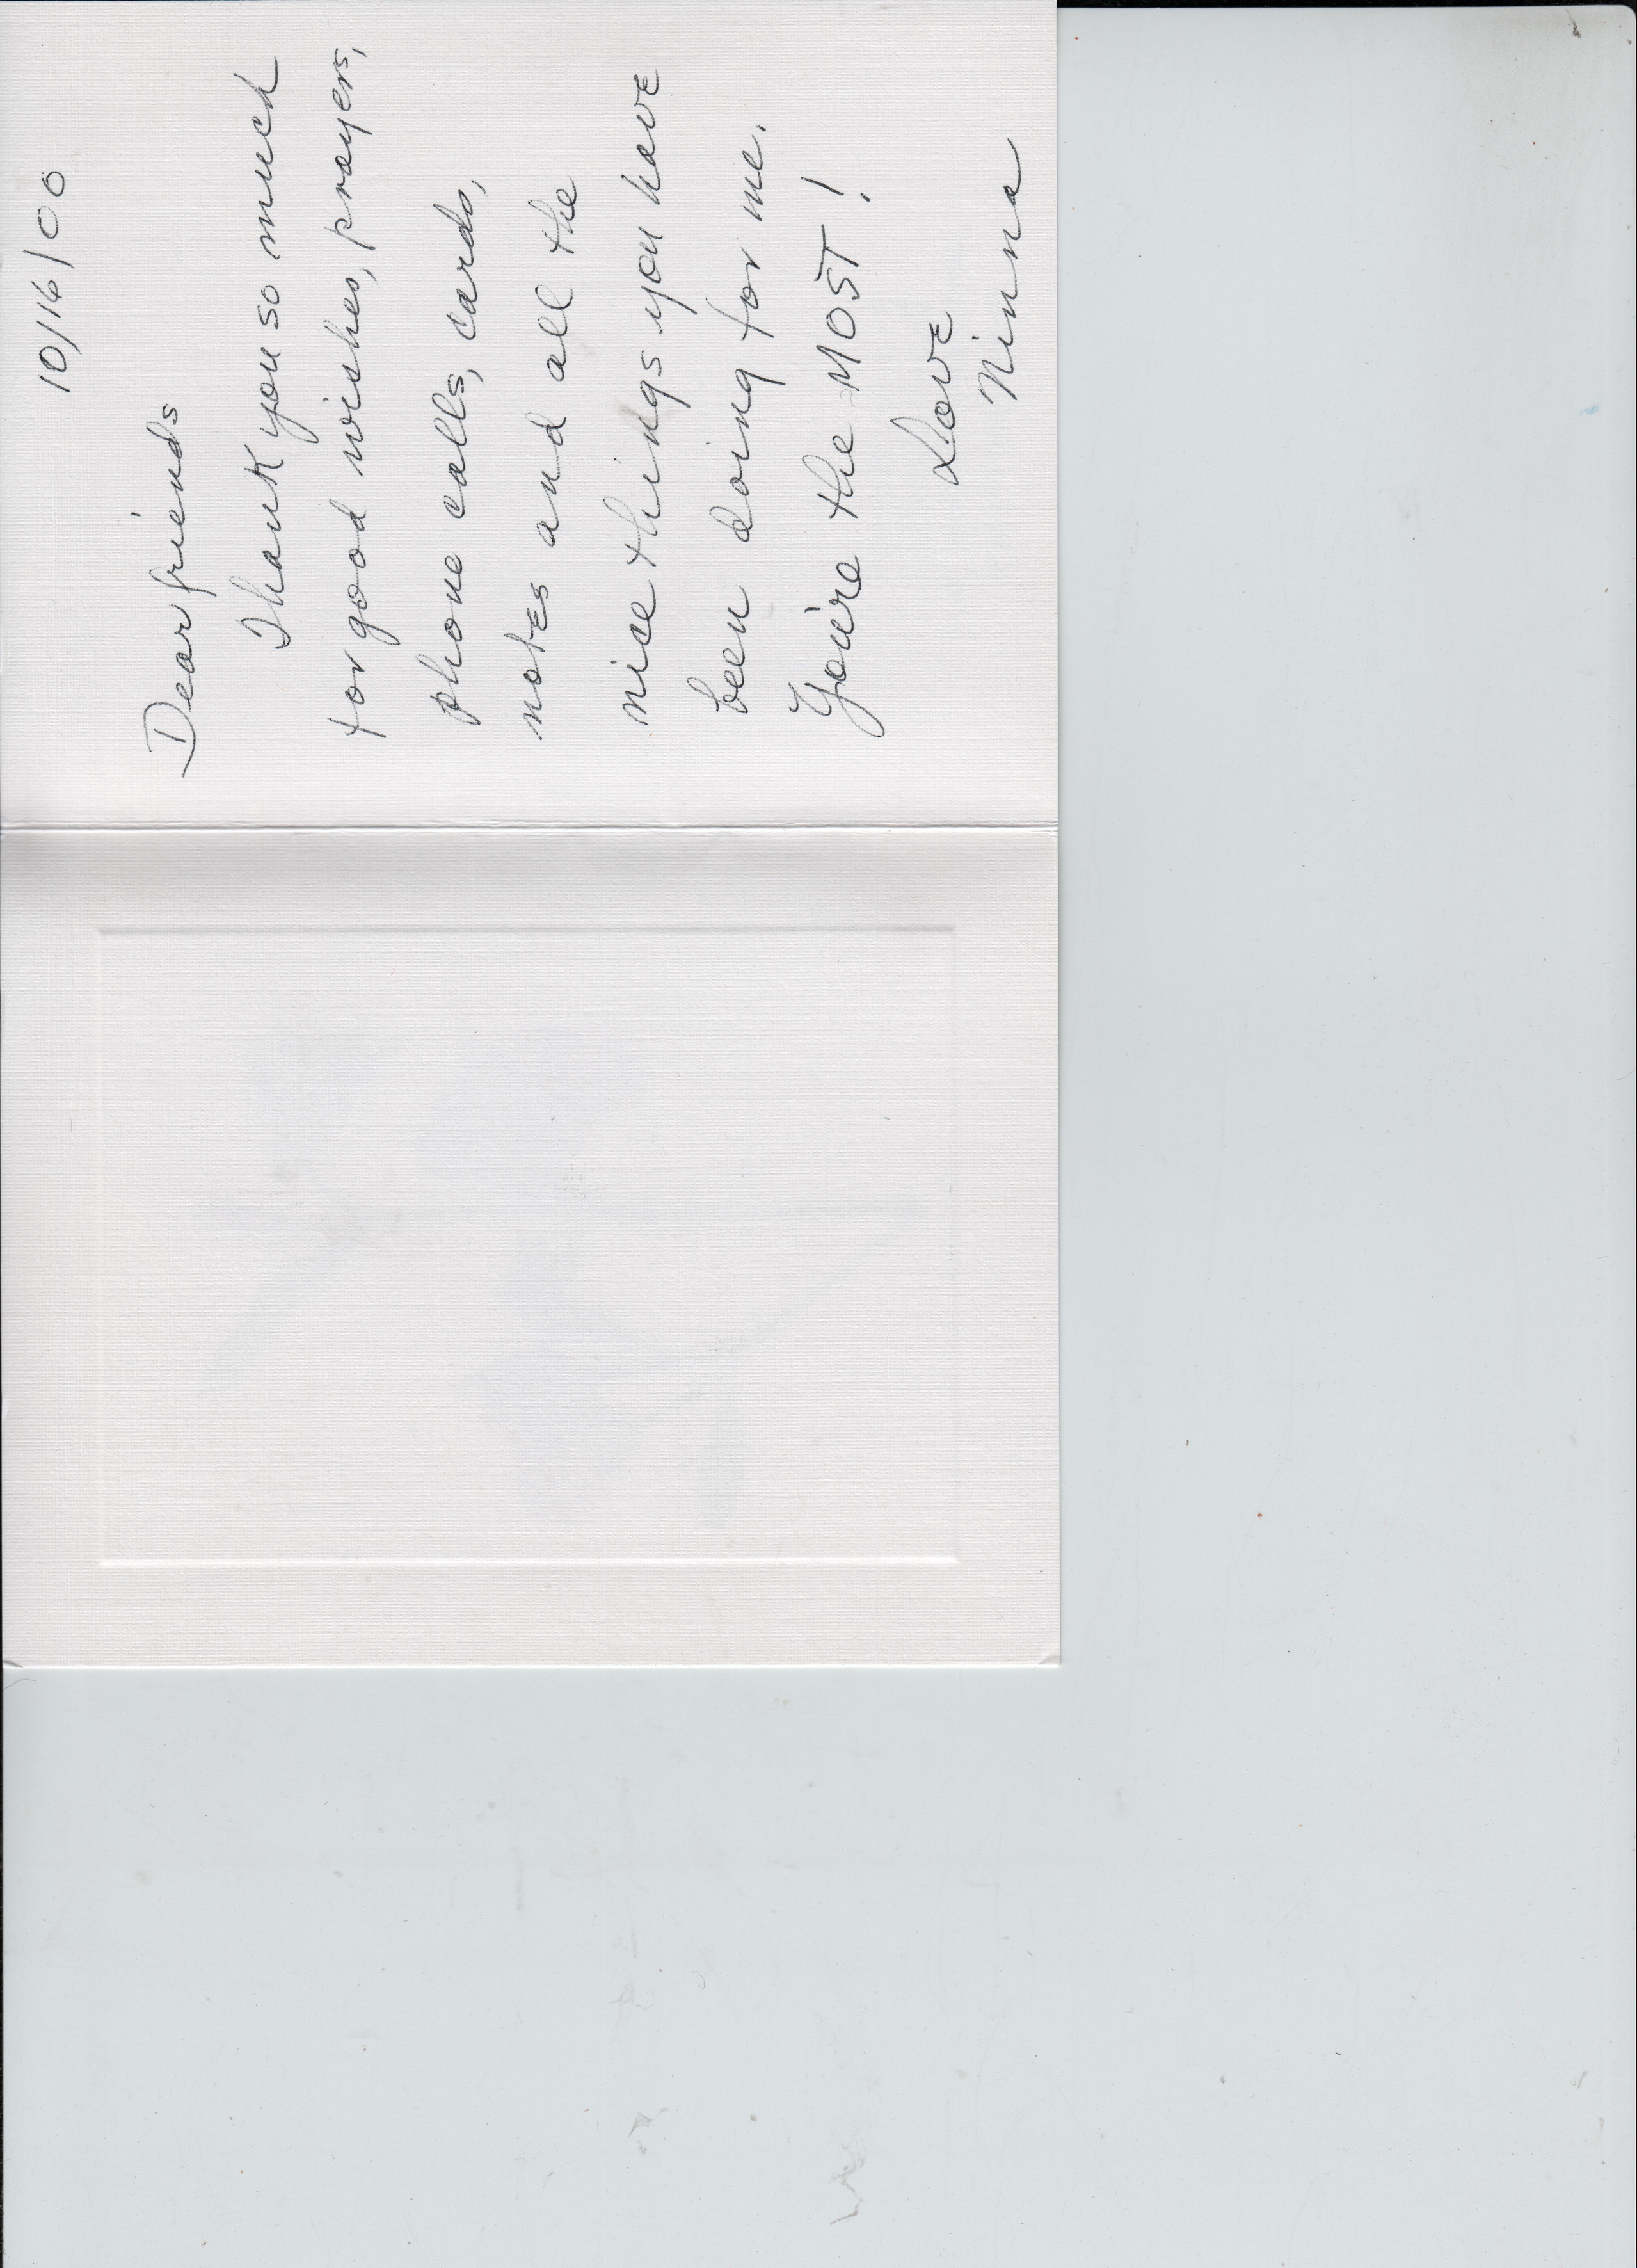 10/16/00
Dear friends
Thank you so much
for good wishes, prayers,
phone calls, cards,
notes and all the
nice things you have
been doing for me.
You're the MOST!
Love
Ninna